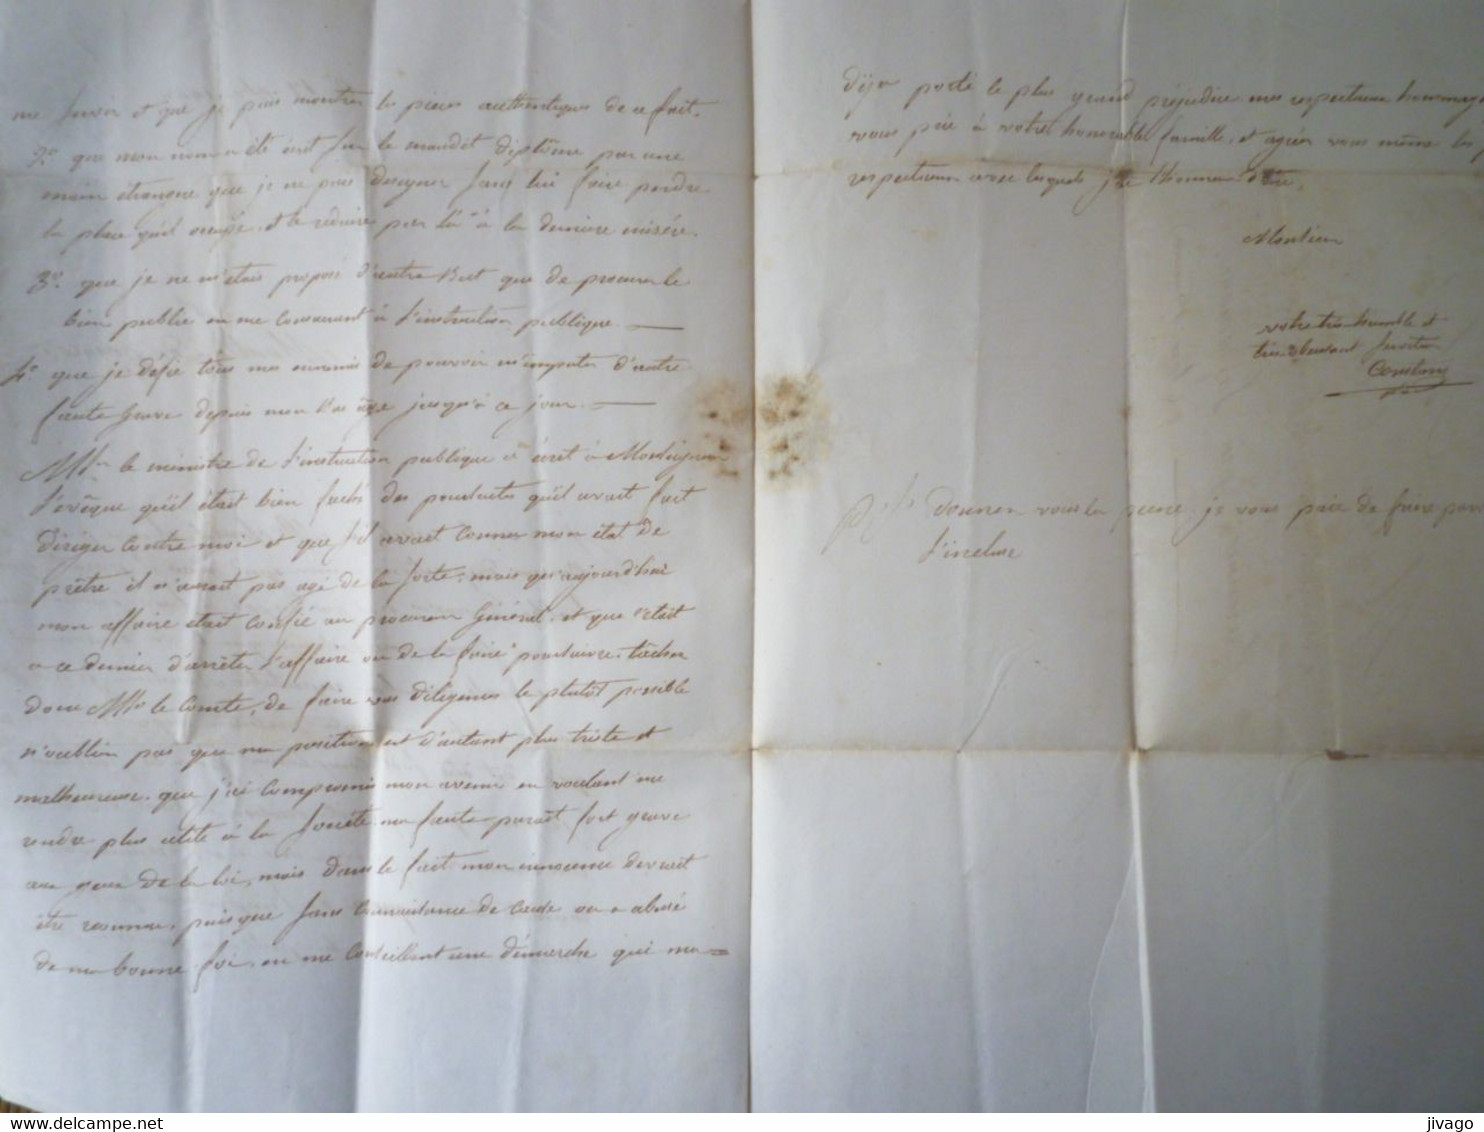 me servir et que je puis montrer les pièces authentiques de ce fait.
2°. que mon nom a été écrit sur le maudit diplôme par une
main étrangère que je ne puis désigner sans lui faire perdre
la place qu'il occupe, et le réduire par là à la dernière misère.
3°. que je ne m'étais proposé d'autre But que de procurer le
bien public en me consacrant à l'instruction publique
4°. que je défie tous mes ennemis de pouvoir m'imputer d'autre
faute grave depuis mon Bas âge jusqu'à ce jour.
le ministre de l'instruction publique a écrit à Monseigneur
l'évêque qu'il était bien fâché des poursuites qu'il avait fait
diriger contre moi et que s'il avait connu mon état de
prêtre il n'aurait pas agi de la sorte, mais qu'aujourd'hui
mon affaire était confié au procureur Général, et que c'était
a ce dernier d'arrêter l'affaire ou de la faire poursuivre, tâchez
donc le Comte, de faire vos diligences le plutôt possible
n'oubliez pas que ma position est d'autant plus triste et
malheureuse, que j'ai compromis mon avenir en voulant me
rendre plus utile à la société, ma faute paraît fort grave
aux yeux de la loi, mais dans le fait mon innocence devrait
être reconnue, puisque sans connaissance de cause on a abusé
de ma bonne foi, en me conseillant une démarche qui m'a
déja porté le plus grand préjudice mes respectueux hommages
vous prie à votre honorable famille, et agréer vous même les
respectueux avec lesquels j'ai l'honneur d'être,
Monsieur
votre très humble et
très obéissant serviteur
P.S. donnez vous la peine je vous prie de faire
l'incluse
jivago